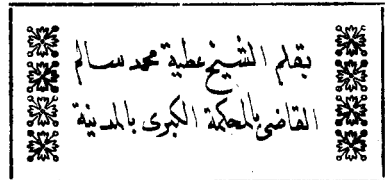 بقلم الشيخ عطية محمد سالم
القاضي بالمحكمة الكبرى بالمدينة